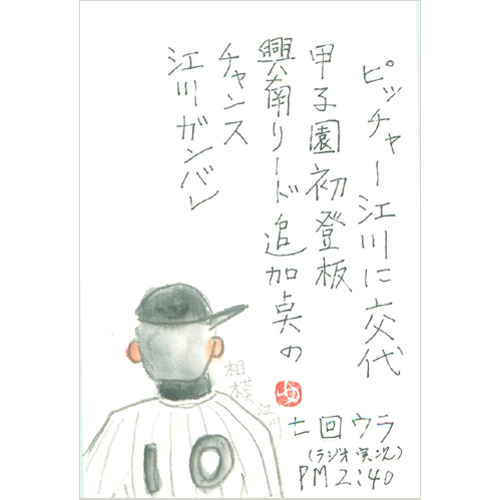 ピッチャー江川に交代
甲子園初登板
興南リード追加点の
チャンス
江川ガンバレ
七回ウラ
(ラジオ実況)
PM2:40
相模
江川
10
ゆ